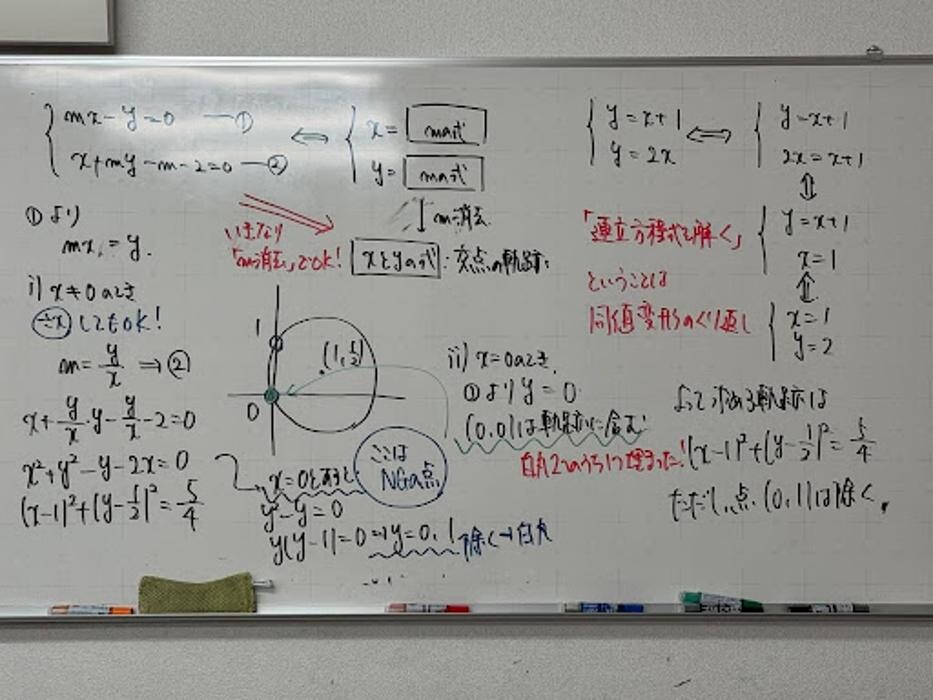 mx-y=0 —①
x+my-m-2=0 —②
⇔
x= mの式
y= mの式
m消去
いきなり
「m消去」でOK!
xとyの式 : 交点の軌跡
①より
mx=y.
i) x≠0のとき
÷xしてもOK!
m=y/x ⇒②
x+y/x・y-y/x-2=0
x²+y²-y-2x=0
(x-1)²+(y-1/2)²=5/4
1
0
(1,1/2)
x=0とすると
y²-y=0
y(y-1)=0→y=0,1 除く→白丸
ここは
NGの点
ii) x=0のとき
①よりy=0
(0,0)は軌跡に含む
白丸2つのうち1つ埋まった!
y=x+1
y=2x
⇔
y=x+1
2x=x+1
⇕
y=x+1
x=1
⇕
x=1
y=2
「連立方程式を解く」
ということは
同値変形のくり返し
よって求める軌跡は
(x-1)²+(y-1/2)²=5/4
ただし、点(0,1)は除く。